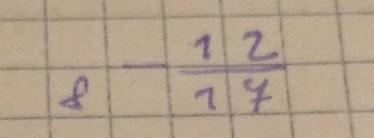 8 - 12/17